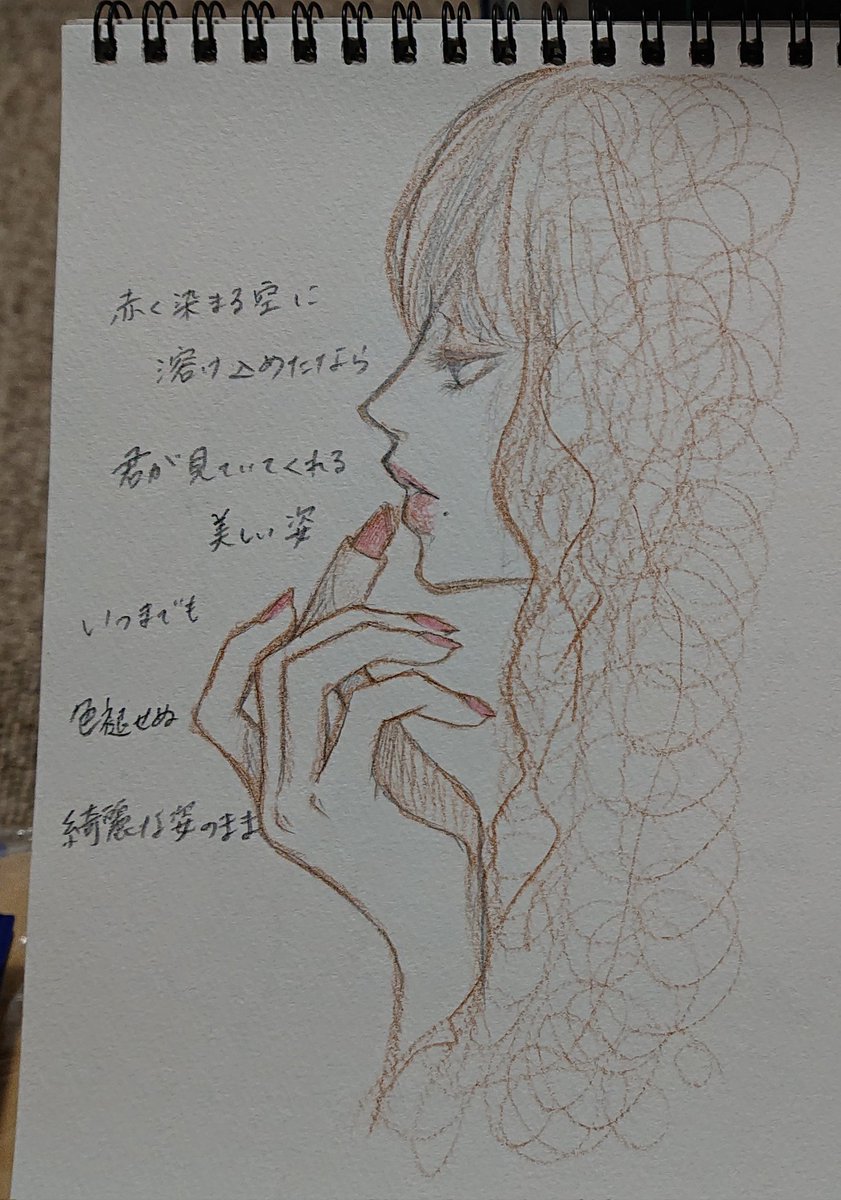 赤く染まる空に
溶け込めたなら
君が見ていてくれる
美しい姿
いつまでも
色褪せぬ
綺麗な姿のまま